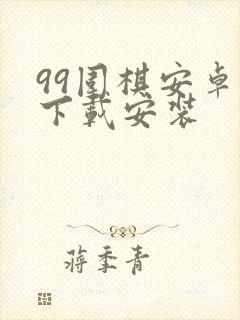 99围棋安卓
下载安装
蒋季青